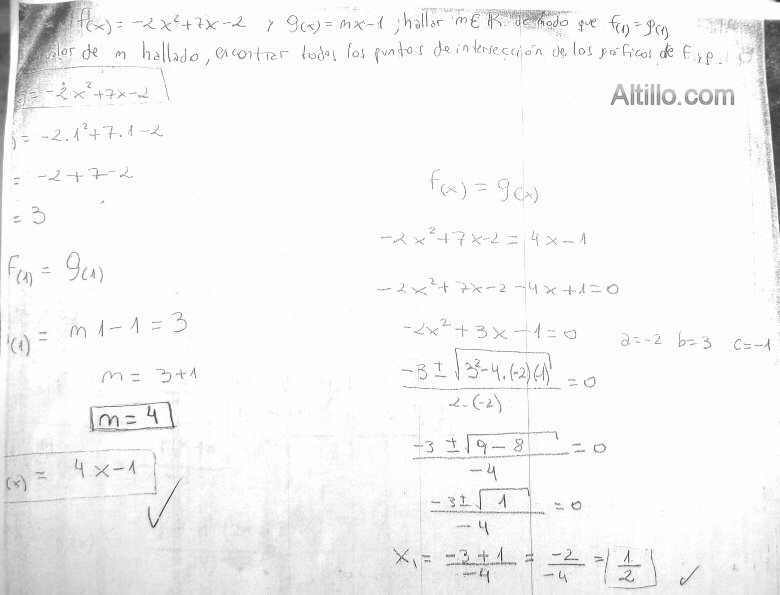 f(x) = -2x²+7x-2 y g(x) = mx-1 ; hallar m∈R de modo que f(1) = g(1)
valor de m hallado, encontrar todos los puntos de intersección de los gráficos de f y g.
Altillo.com
= -2x²+7x-2
) = -2.1²+7.1-2
= -2+7-2
= 3
f(1) = g(1)
(1) = m1-1 = 3
m = 3+1
m = 4
(x) = 4x-1
f(x) = g(x)
-2x²+7x-2 = 4x-1
-2x²+7x-2-4x+1=0
-2x²+3x-1=0 a=-2 b=3 c=-1
-3±√3²-4.(-2)(-1) / 2.(-2) = 0
-3±√9-8 / -4 = 0
-3±√1 / -4 = 0
x₁ = -3+1 / -4 = -2 / -4 = 1/2